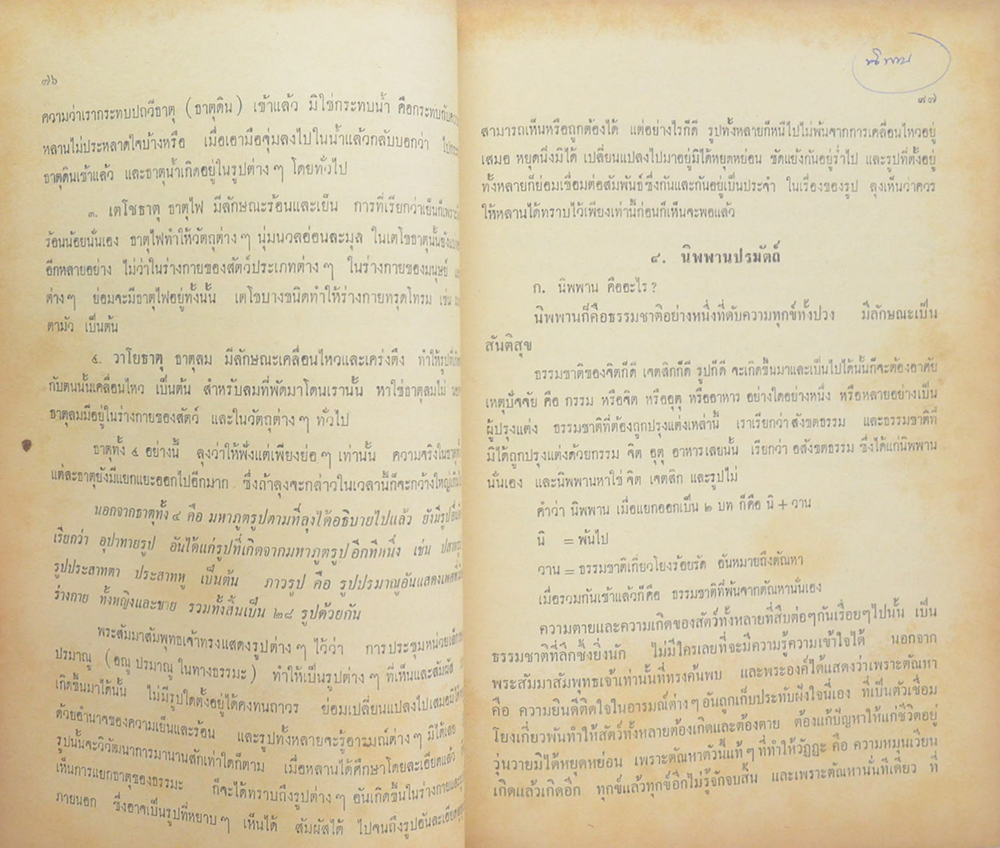 ๗๖
ความว่าเรากระทบปถวีธาตุ (ธาตุดิน) เข้าแล้ว มิใช่กระทบน้ำ คือกระทบกับ
หลานไม่ประหลาดใจบ้างหรือ เมื่อเอามือจุ่มลงไปในน้ำแล้วกลับบอกว่า
ธาตุดินเข้าแล้ว และธาตุน้ำเกิดอยู่ในรูปต่าง ๆ โดยทั่วไป
๓. เตโชธาตุ ธาตุไฟ มีลักษณะร้อนและเย็น การที่เรียกว่าเย็นก็เพราะ
ร้อนน้อยนั่นเอง ธาตุไฟทำให้วัตถุต่าง ๆ นุ่มนวลอ่อนละมุล ในเตโชธาตุนั้นยัง
อีกหลายอย่าง ไม่ว่าในร่างกายของสัตว์ประเภทต่าง ๆ ในร่างกายของมนุษย์
ต่าง ๆ ย่อมจะมีธาตุไฟอยู่ทั้งนั้น เตโชบางชนิดทำให้ร่างกายทรุดโทรม เช่น
ตามัว เป็นต้น
๔. วาโยธาตุ ธาตุลม มีลักษณะเคลื่อนไหวและเคร่งตึง ทำให้รูปที่
กับตนนั้นเคลื่อนไหว เป็นต้น สำหรับลมที่พัดมาโดนเรานั้น หาใช่ธาตุลมไม่
ธาตุลมมีอยู่ในร่างกายของสัตว์ และในวัตถุต่าง ๆ ทั่วไป
ธาตุทั้ง ๔ อย่างนี้ ลุงว่าให้ฟังแต่เพียงย่อ ๆ เท่านั้น ความจริงใน
แต่ละธาตุยังมีแยกแยะออกไปอีกมาก ซึ่งถ้าลุงจะกล่าวในเวลานี้ก็จะกว้างใหญ่
นอกจากธาตุทั้ง ๔ คือ มหาภูตรูปตามที่ลุงได้อธิบายไปแล้ว ยังมีรูป
เรียกว่า อุปาทายรูป อันได้แก่รูปที่เกิดจากมหาภูตรูปอีกทีหนึ่ง เช่น
รูปประสาทตา ประสาทหู เป็นต้น ภาวรูป คือ รูปปรมาณูอันแสดงเพศ
ร่างกาย ทั้งหญิงและชาย รวมทั้งสิ้นเป็น ๒๘ รูปด้วยกัน
พระสัมมาสัมพุทธเจ้าทรงแสดงรูปต่าง ๆ ไว้ว่า การประชุมหน่วยเล็ก
ปรมาณู (อณู ปรมาณู ในทางธรรมะ) ทำให้เป็นรูปต่าง ๆ ที่เห็นและสัมผัส
เกิดขึ้นมาได้นั้น ไม่มีรูปใดตั้งอยู่ได้คงทนถาวร ย่อมเปลี่ยนแปลงไปเสมอ
ด้วยอำนาจของความเย็นและร้อน และรูปทั้งหลายจะรู้อารมณ์ต่าง ๆ มิได้เลย
รูปนั้นจะวิวัฒนาการมานานสักเท่าใดก็ตาม เมื่อหลานได้ศึกษาโดยละเอียดแล้ว
เห็นการแยกธาตุของธรรมะ ก็จะได้ทราบถึงรูปต่าง ๆ อันเกิดขึ้นในร่างกาย
ภายนอก ซึ่งอาจเป็นรูปที่หยาบ ๆ เห็นได้ สัมผัสได้ ไปจนถึงรูปอันละเอียด
นิพาน
๗๗
สามารถเห็นหรือถูกต้องได้ แต่อย่างไรก็ดี รูปทั้งหลายก็หนีไปไม่พ้นจากการเคลื่อนไหวอยู่
เสมอ หยุดนิ่งมิได้ เปลี่ยนแปลงไปมาอยู่มิได้หยุดหย่อน ขัดแย้งกันอยู่ร่ำไป และรูปที่ตั้งอยู่
ทั้งหลายก็ย่อมเชื่อมต่อสัมพันธ์ซึ่งกันและกันอยู่เป็นประจำ ในเรื่องของรูป ลุงเห็นว่าควร
ให้หลานได้ทราบไว้เพียงเท่านี้ก่อนก็เห็นจะพอแล้ว
๔. นิพพานปรมัตถ์
ก. นิพพาน คืออะไร ?
นิพพานก็คือธรรมชาติอย่างหนึ่งที่ดับความทุกข์ทั้งปวง มีลักษณะเป็น
สันติสุข
ธรรมชาติของจิตก็ดี เจตสิกก็ดี รูปก็ดี จะเกิดขึ้นมาและเป็นไปได้นั้นก็จะต้องอาศัย
เหตุปัจจัย คือ กรรม หรือจิต หรืออุตุ หรืออาหาร อย่างใดอย่างหนึ่ง หรือหลายอย่างเป็น
ผู้ปรุงแต่ง ธรรมชาติที่ต้องถูกปรุงแต่งเหล่านี้ เราเรียกว่าสังขตธรรม และธรรมชาติที่
มิได้ถูกปรุงแต่งด้วยกรรม จิต อุตุ อาหารเลยนั้น เรียกว่า อสังขตธรรม ซึ่งได้แก่นิพพาน
นั่นเอง และนิพพานหาใช่ จิต เจตสิก และรูปไม่
คำว่า นิพพาน เมื่อแยกออกเป็น ๒ บท ก็คือ นิ + วาน
นิ = พ้นไป
วาน = ธรรมชาติเกี่ยวโยงร้อยรัด อันหมายถึงตัณหา
เมื่อรวมกันเข้าแล้วก็คือ ธรรมชาติที่พ้นจากตัณหานั่นเอง
ความตายและความเกิดของสัตว์ทั้งหลายที่สืบต่อๆกันเรื่อยๆไปนั้น เป็น
ธรรมชาติที่ลึกซึ้งยิ่งนัก ไม่มีใครเลยที่จะมีความรู้ความเข้าใจได้ นอกจาก
พระสัมมาสัมพุทธเจ้าเท่านั้นที่ทรงค้นพบ และพระองค์ได้แสดงว่าเพราะตัณหา
คือ ความยินดีติดใจในอารมณ์ต่างๆอันถูกเก็บประทับฝังใจนี้เอง ที่เป็นตัวเชื่อม
โยงเกี่ยวพันทำให้สัตว์ทั้งหลายต้องเกิดและต้องตาย ต้องแก้ปัญหาให้แก่ชีวิตอยู่
วุ่นวายมิได้หยุดหย่อน เพราะตัณหาตัวนี้แท้ๆที่ทำให้วัฏฏะ คือ ความหมุนเวียน
เกิดแล้วเกิดอีก ทุกข์แล้วทุกข์อีกไม่รู้จักจบสิ้น และเพราะตัณหานั่นทีเดียว ที่